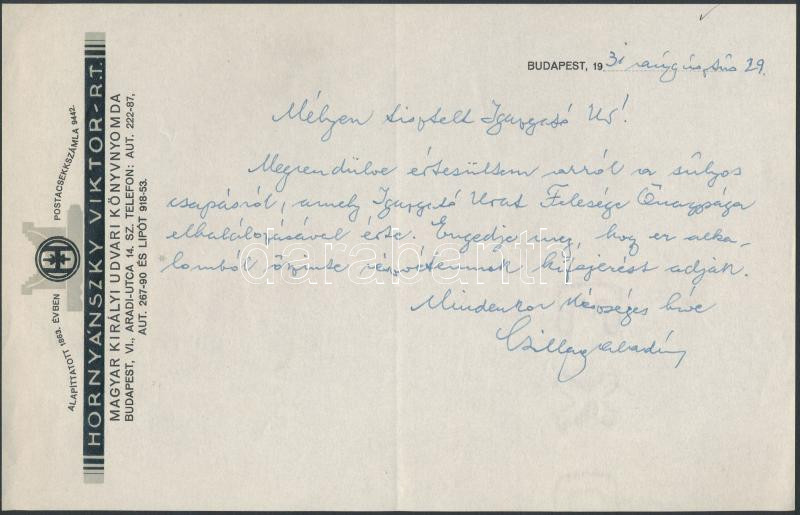 ALAPÍTTATOTT 1863. ÉVBEN POSTACSEKKSZÁMLA 9442.
HORNYÁNSZKY VIKTOR R.T.
MAGYAR KIRÁLYI UDVARI KÖNYVNYOMDA
BUDAPEST, VI., ARADI-UTCA 14. SZ. TELEFON: AUT. 222-87,
AUT. 267-90 ÉS LIPÓT 918-53.
BUDAPEST, 1931 augusztus 29.
Mélyen tisztelt Igazgató Úr!
Megrendülve értesültem arról a súlyos
csapásról, amely Igazgató Urat Felesége Őnagysága
elhalálozásával érte. Engedje meg, hogy ez alka-
lomból őszinte részvétemnek kifejezést adjak.
Mindenkor készséges híve
darabanth